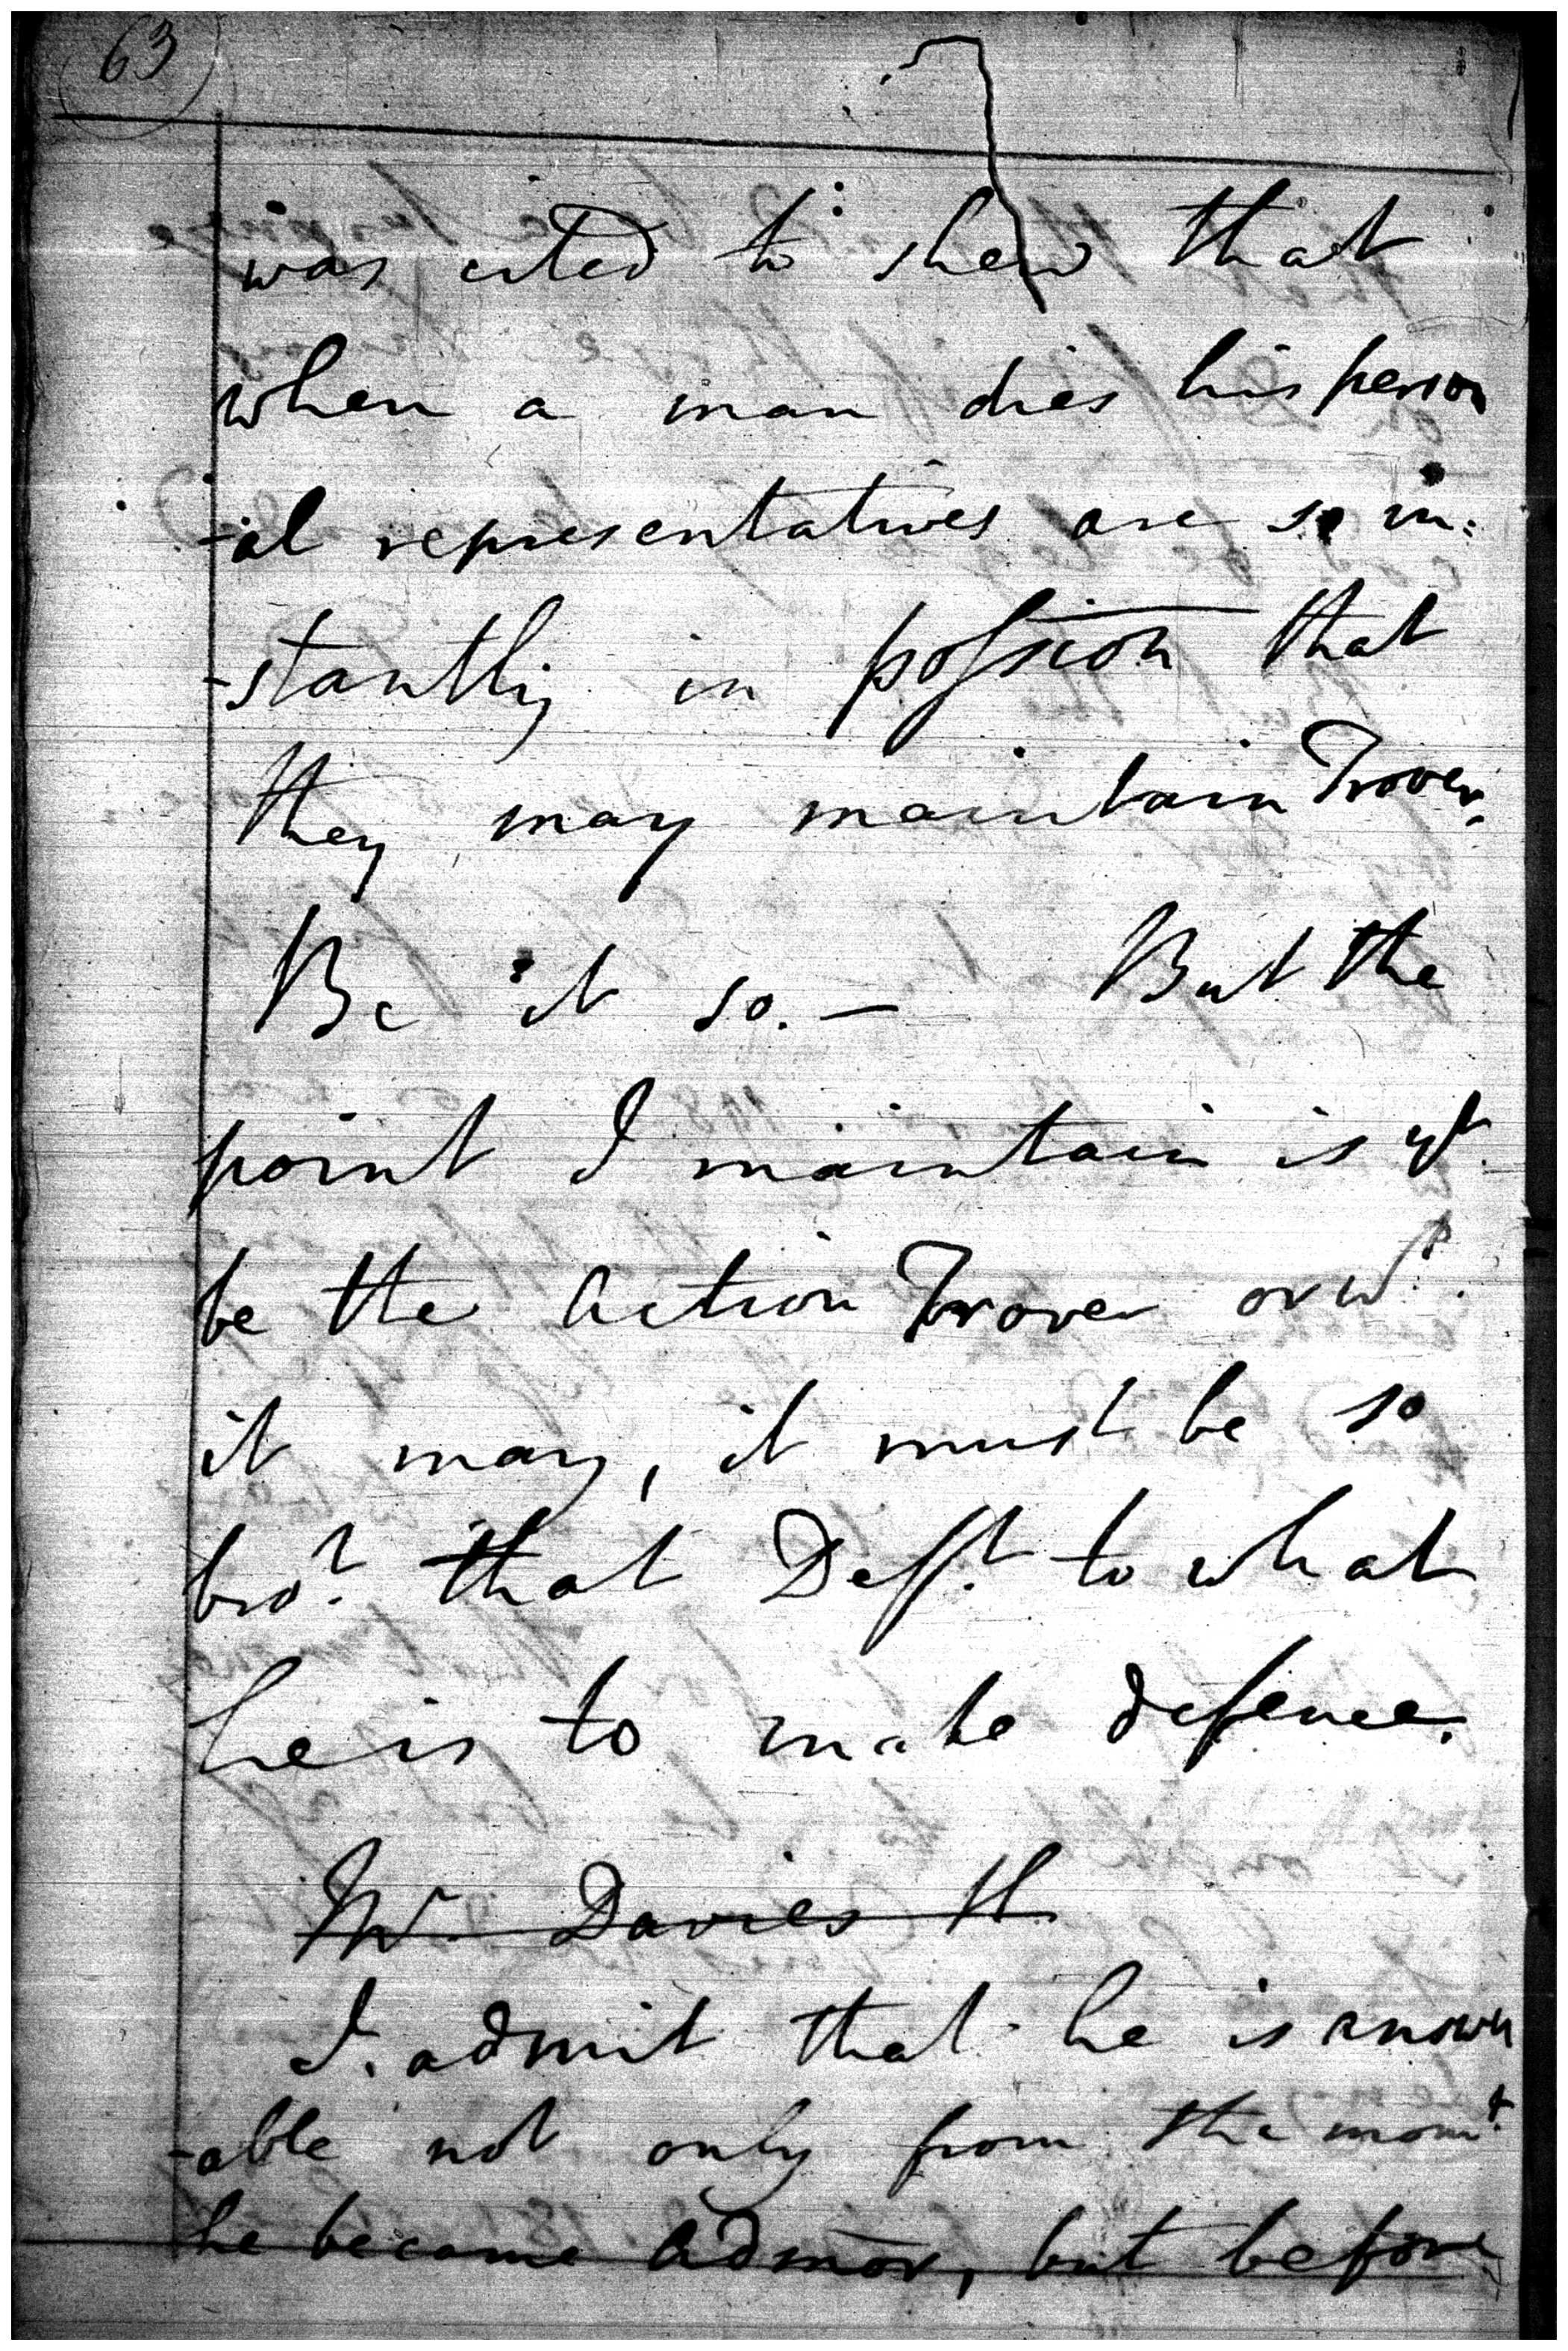 63
was cited to shew that
when a man dies his person
-al representatives are so in:
-stantly in possion that
they may maintain Trover.
Be it so. — But the
point I maintain is yt.
be the Action Trover or wt.
it may, it must be so
brot. that Defft. to what
he is to make defence.
Mr. Davies H
I admit that he is answer
-able not only from the momt.
he became Admor, but before